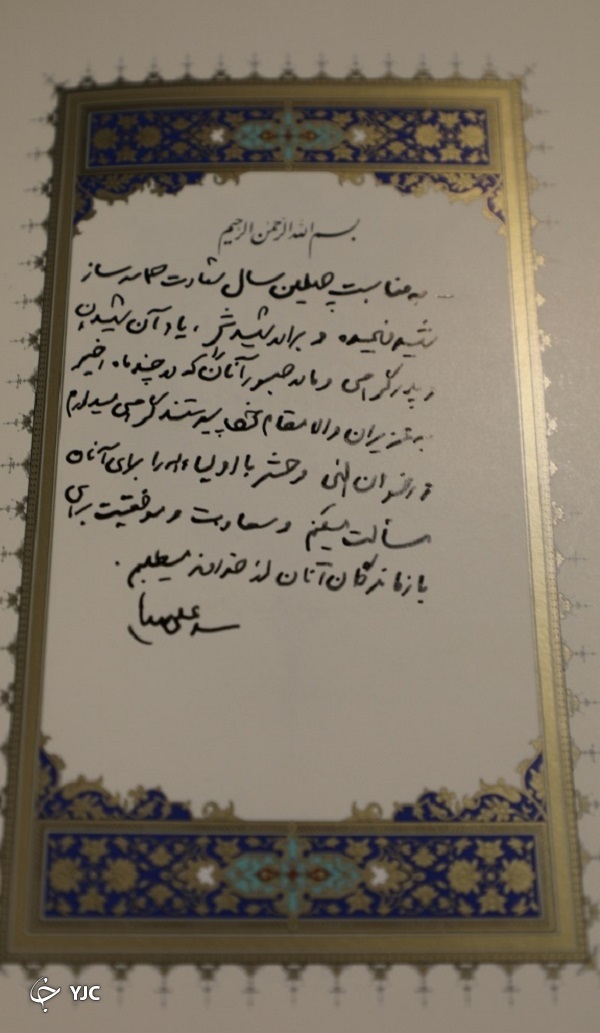 بسم الله الرحمن الرحیم
به مناسبت چهلمین سال شهادت حماسه ساز
شهید فهمیده و برادر شهیدش، یاد آن شهیدان
و پدر گرامی و مادر صبور آنان را که در چند ماه اخیر
به عزیزان والا مقام خود پیوستند گرامی میدارم
و رضوان الهی و حشر با اولیاءاله را برای آنان
مسألت میکنم و سعادت و موفقیت برای
بازماندگان آنان از خداوند میطلبم.
سید علی خامنه‌ای
YJC